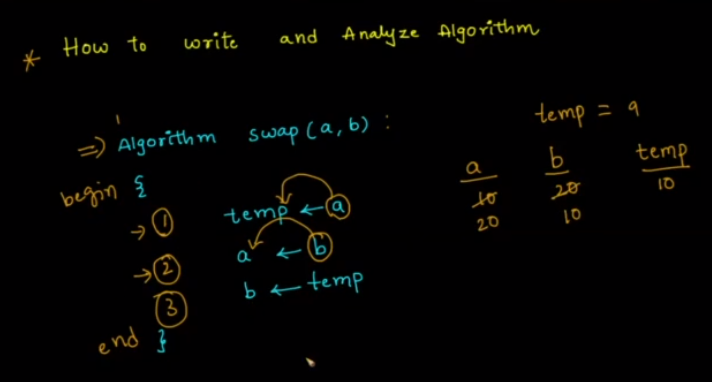 * How to write and Analyze Algorithm
⇒) Algorithm swap(a, b) :
begin {
→ ① temp ← a
→ ② a ← b
③ b ← temp
end }
temp = a
a b temp
10 20 10
20 10